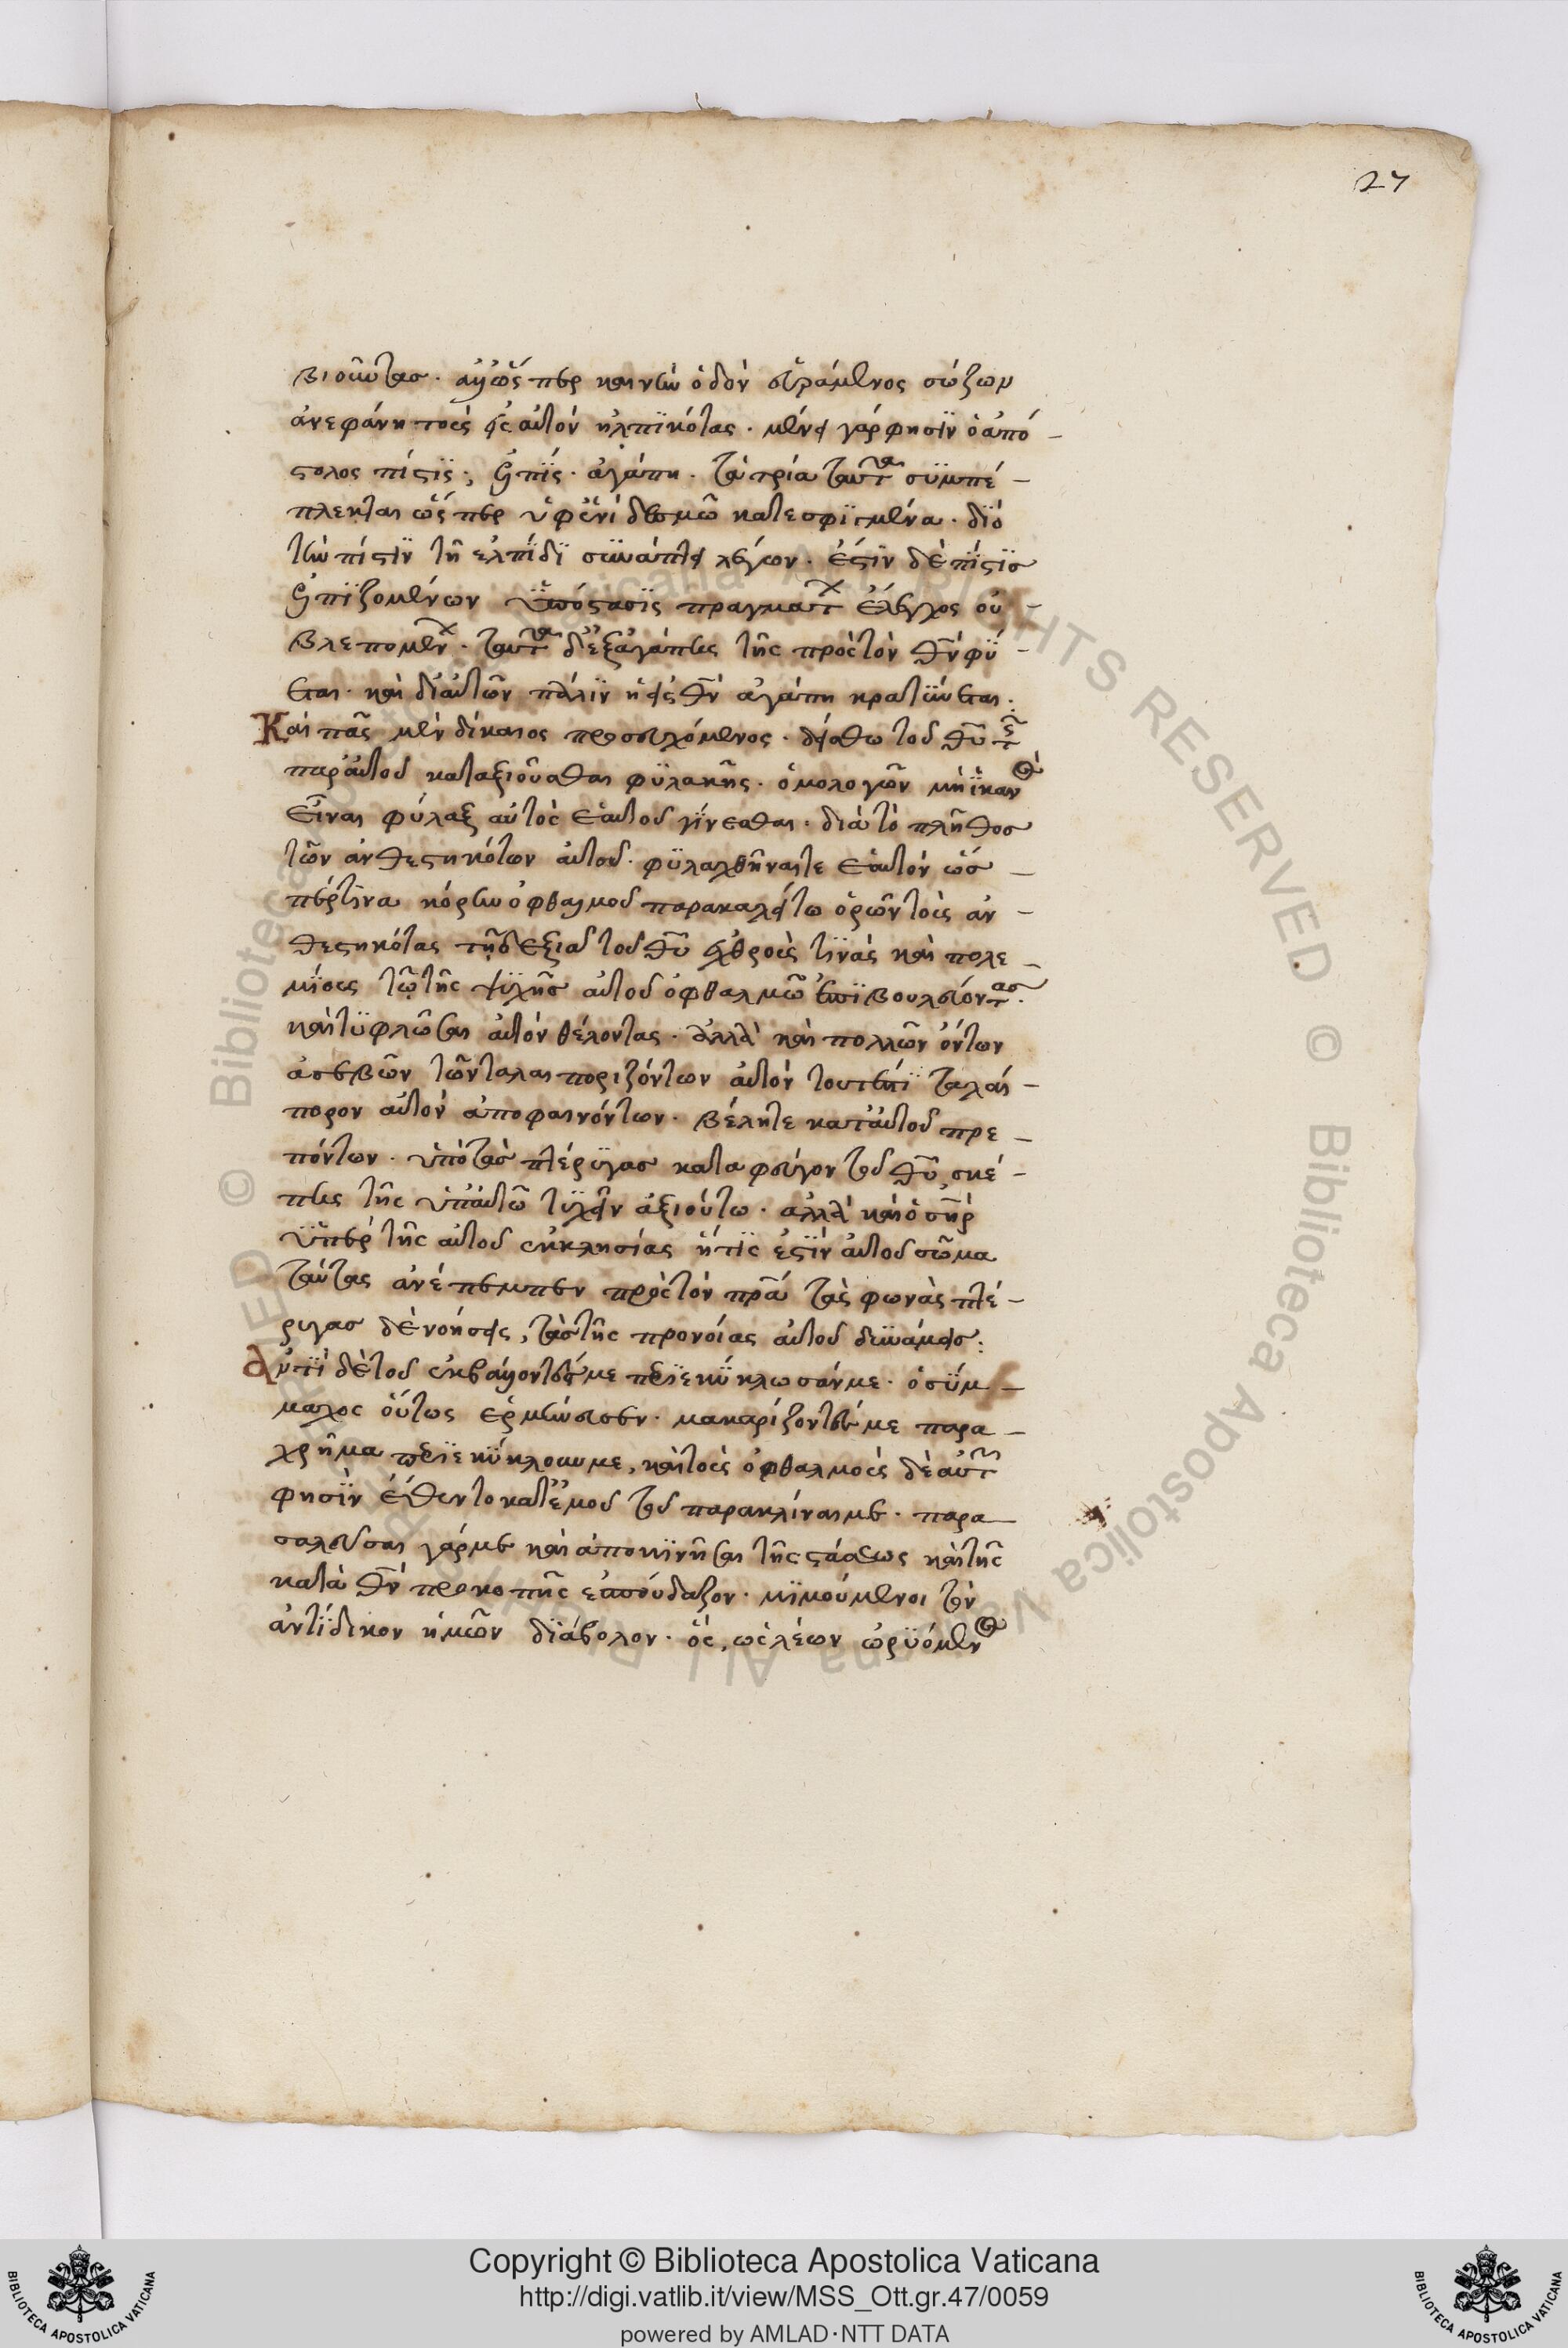 27
βιοῦντας. ἀλλ' ὥσπερ καινὴν ὁδὸν εὑράμενος σώζων
ἀνεφάνη τοὺς εἰς αὐτὸν ἠλπικότας. μένει γάρ φησιν ὁ ἀπό-
στολος πίστις, ἐλπίς. ἀγάπη. τὰ τρία ταῦτα συμπέ-
πλεκται ὥσπερ ὑφ' ἑνὶ δεσμῶ κατεσφιγμένα. διὸ
τὴν πίστιν τῆ ἐλπίδι συνάπτει λέγων. ἔστιν δὲ πίστις
ἐλπιζομένων ὑπόστασις πραγμάτων ἔλεγχος οὐ
βλεπομένων. ταῦτα δὲ ἐξ ἀγάπης τῆς πρὸς τὸν θν φύ-
εται. καὶ δι' αὐτῶν πάλιν ἡ εἰς θν ἀγάπη κρατύνεται:
Καὶ πᾶς μὲν δίκαιος προσευχόμενος. δείσθω τοῦ θυ τῆς
παρ' αὐτοῦ καταξιοῦσθαι φυλακῆς. ὁμολογῶν μὴ ἱκανὸς
εἶναι φύλαξ αὐτὸς ἑαυτοῦ γίνεσθαι. διὰ τὸ πλῆθος
τῶν ἀνθεστηκότων αὐτοῦ. φυλαχθῆναί τε ἑαυτὸν ὡσ-
πέρ τινα κόρην ὀφθαλμοῦ παρακαλείτω ὁρῶν τοὺς ἀν-
θεστηκότας τῆ δεξιᾶ τοῦ θυ ἐχθροὺς τινὰς καὶ πολε-
μίους τῶ τῆς ψυχῆς αὐτοῦ ὀφθαλμῶ ἐπιβουλεύοντας.
καὶ τυφλῶσαι αὐτὸν θέλοντας. ἀλλὰ καὶ πολλῶν ὄντων
ἀσεβῶν τῶν ταλαιποριζόντων αὐτὸν τουτέστι ταλαί-
πορον αὐτὸν ἀποφαινόντων. βέλη τε κατ' αὐτοῦ πρε-
πόντων. ὑπὸ τὰς πτέρυγας καταφεύγον τοῦ θυ, σκέ-
πης τῆς ὑπ' αὐτῶ τυχεῖν ἀξιούτω. ἀλλὰ καὶ ὁ σηρ
ὑπὲρ τῆς αὐτοῦ ἐκκλησίας ἥτις ἐστὶν αὐτοῦ σῶμα
ταύτας ἀνέπεμπεν πρὸς τὸν πρα τὰς φωνὰς πτέ-
ρυγας δὲ νοήσεις, τὰς τῆς προνοίας αὐτοῦ δυνάμεις:
Ἀντὶ δὲ τοῦ ἐκβάλλοντές με περιεκύκλωσάν με. ὁ σύμ-
μαχος οὕτως ἑρμήνευσεν. μακαρίζοντές με παρα-
χρῆμα περιεκύκλουν με, καὶ τοὺς ὀφθαλμοὺς δὲ αὐτῶν
φησὶν ἔθεντο κατ' ἐμοῦ τοῦ παρακλῖναι με. παρα-
σαλεῦσαι γάρ με καὶ ἀποκινῆσαι τῆς στάσεως καὶ τῆς
κατὰ θν προκοπῆς ἐσπούδαζον. μιμούμενοι τὸν
ἀντίδικον ἡμῶν διάβολον. ὃς, ὡς λέων ὠρυόμενος
Copyright © Biblioteca Apostolica Vaticana
http://digi.vatlib.it/view/MSS_Ott.gr.47/0059
powered by AMLAD·NTT DATA